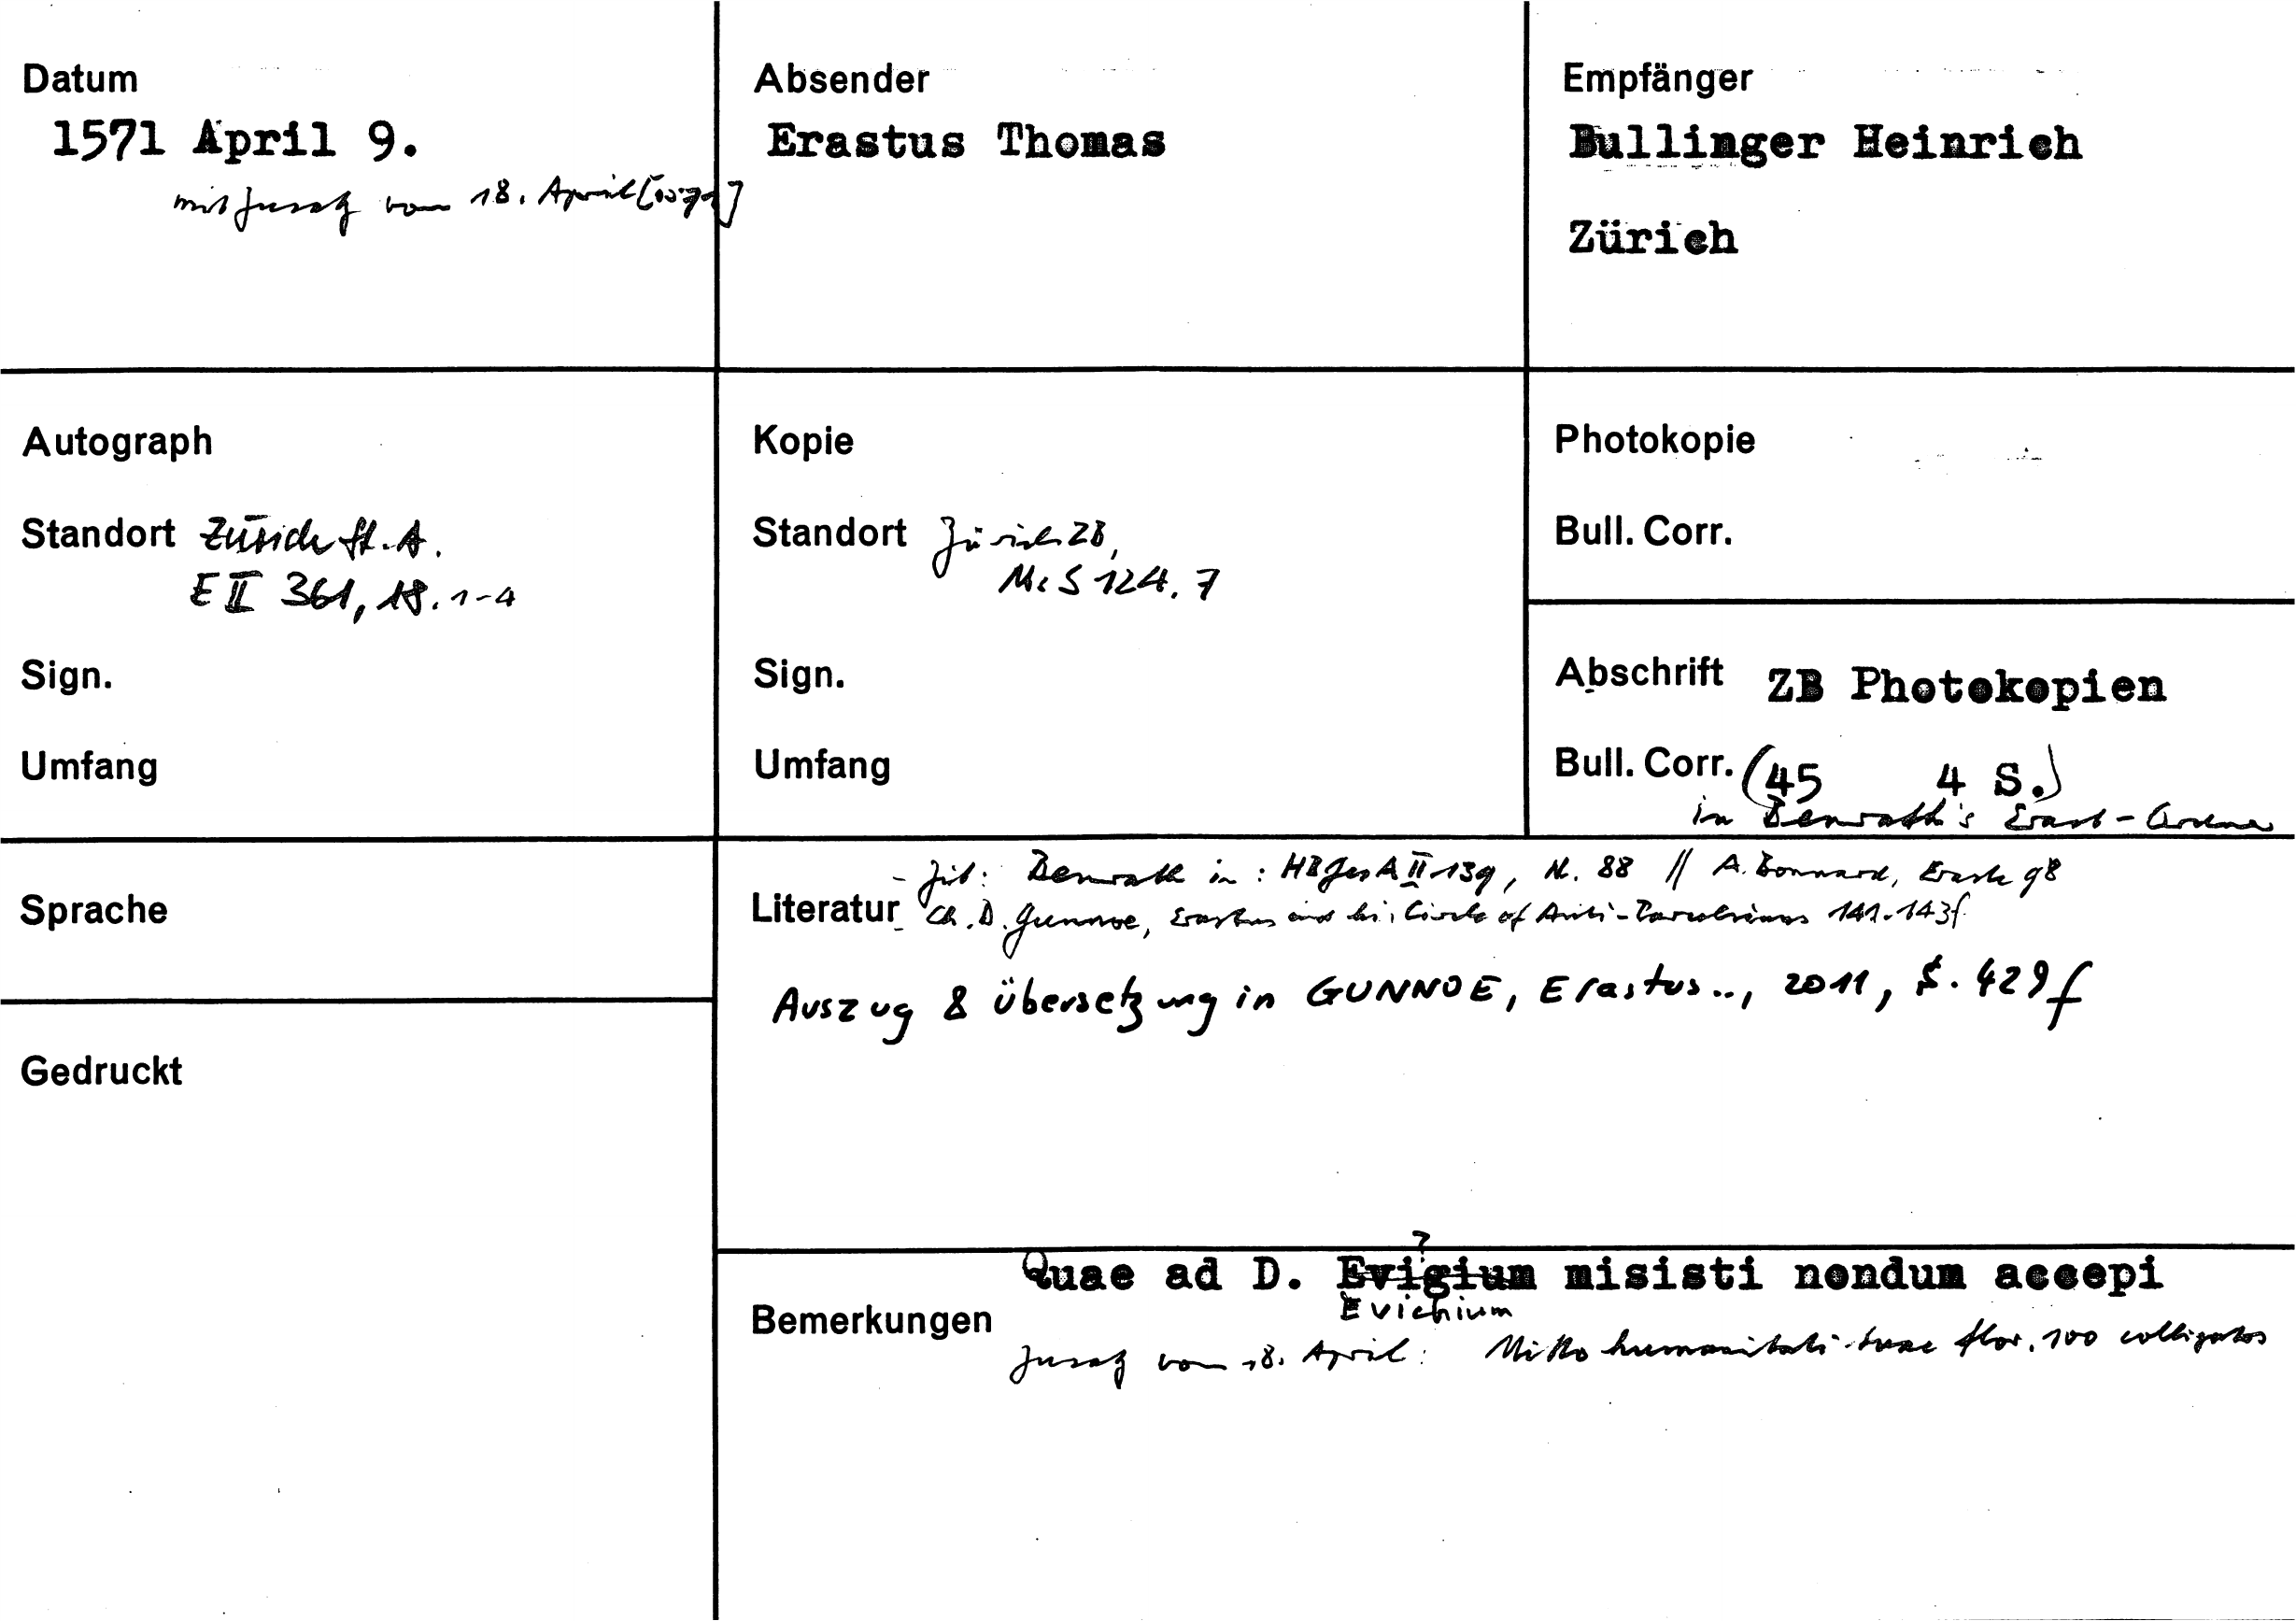 Datum
1571 April 9.
mit Zusatz vom 18. April [1571]
Absender
Erastus Thomas
Empfänger
Bullinger Heinrich
Zürich
Autograph
Standort Zürich St. A.
E II 361, 18. 1-4
Sign.
Umfang
Kopie
Standort Zürich ZB,
Ms S 124. 7
Sign.
Umfang
Photokopie
Bull. Corr.
Abschrift ZB Photokopien
Bull. Corr. (45 4 S.)
in Benrath's Erast-
Sprache
Gedruckt
- Zit: Benrath in: HBGesA II 139, N. 88 // A. Bonnard, Eraste 98
Literatur - Ch. D. Gunnoe, Erastus and his Circle of Anti-Paracelsians 141. 143f.
Auszug & Übersetzung in GUNNOE, Erastus.., 2011, S. 429f
?
Quae ad D. Evigium misisti nondum accepi
Evichium
Bemerkungen
Zusatz vom 18. April: Mitto humanitati tuae flor. 100 colligatos